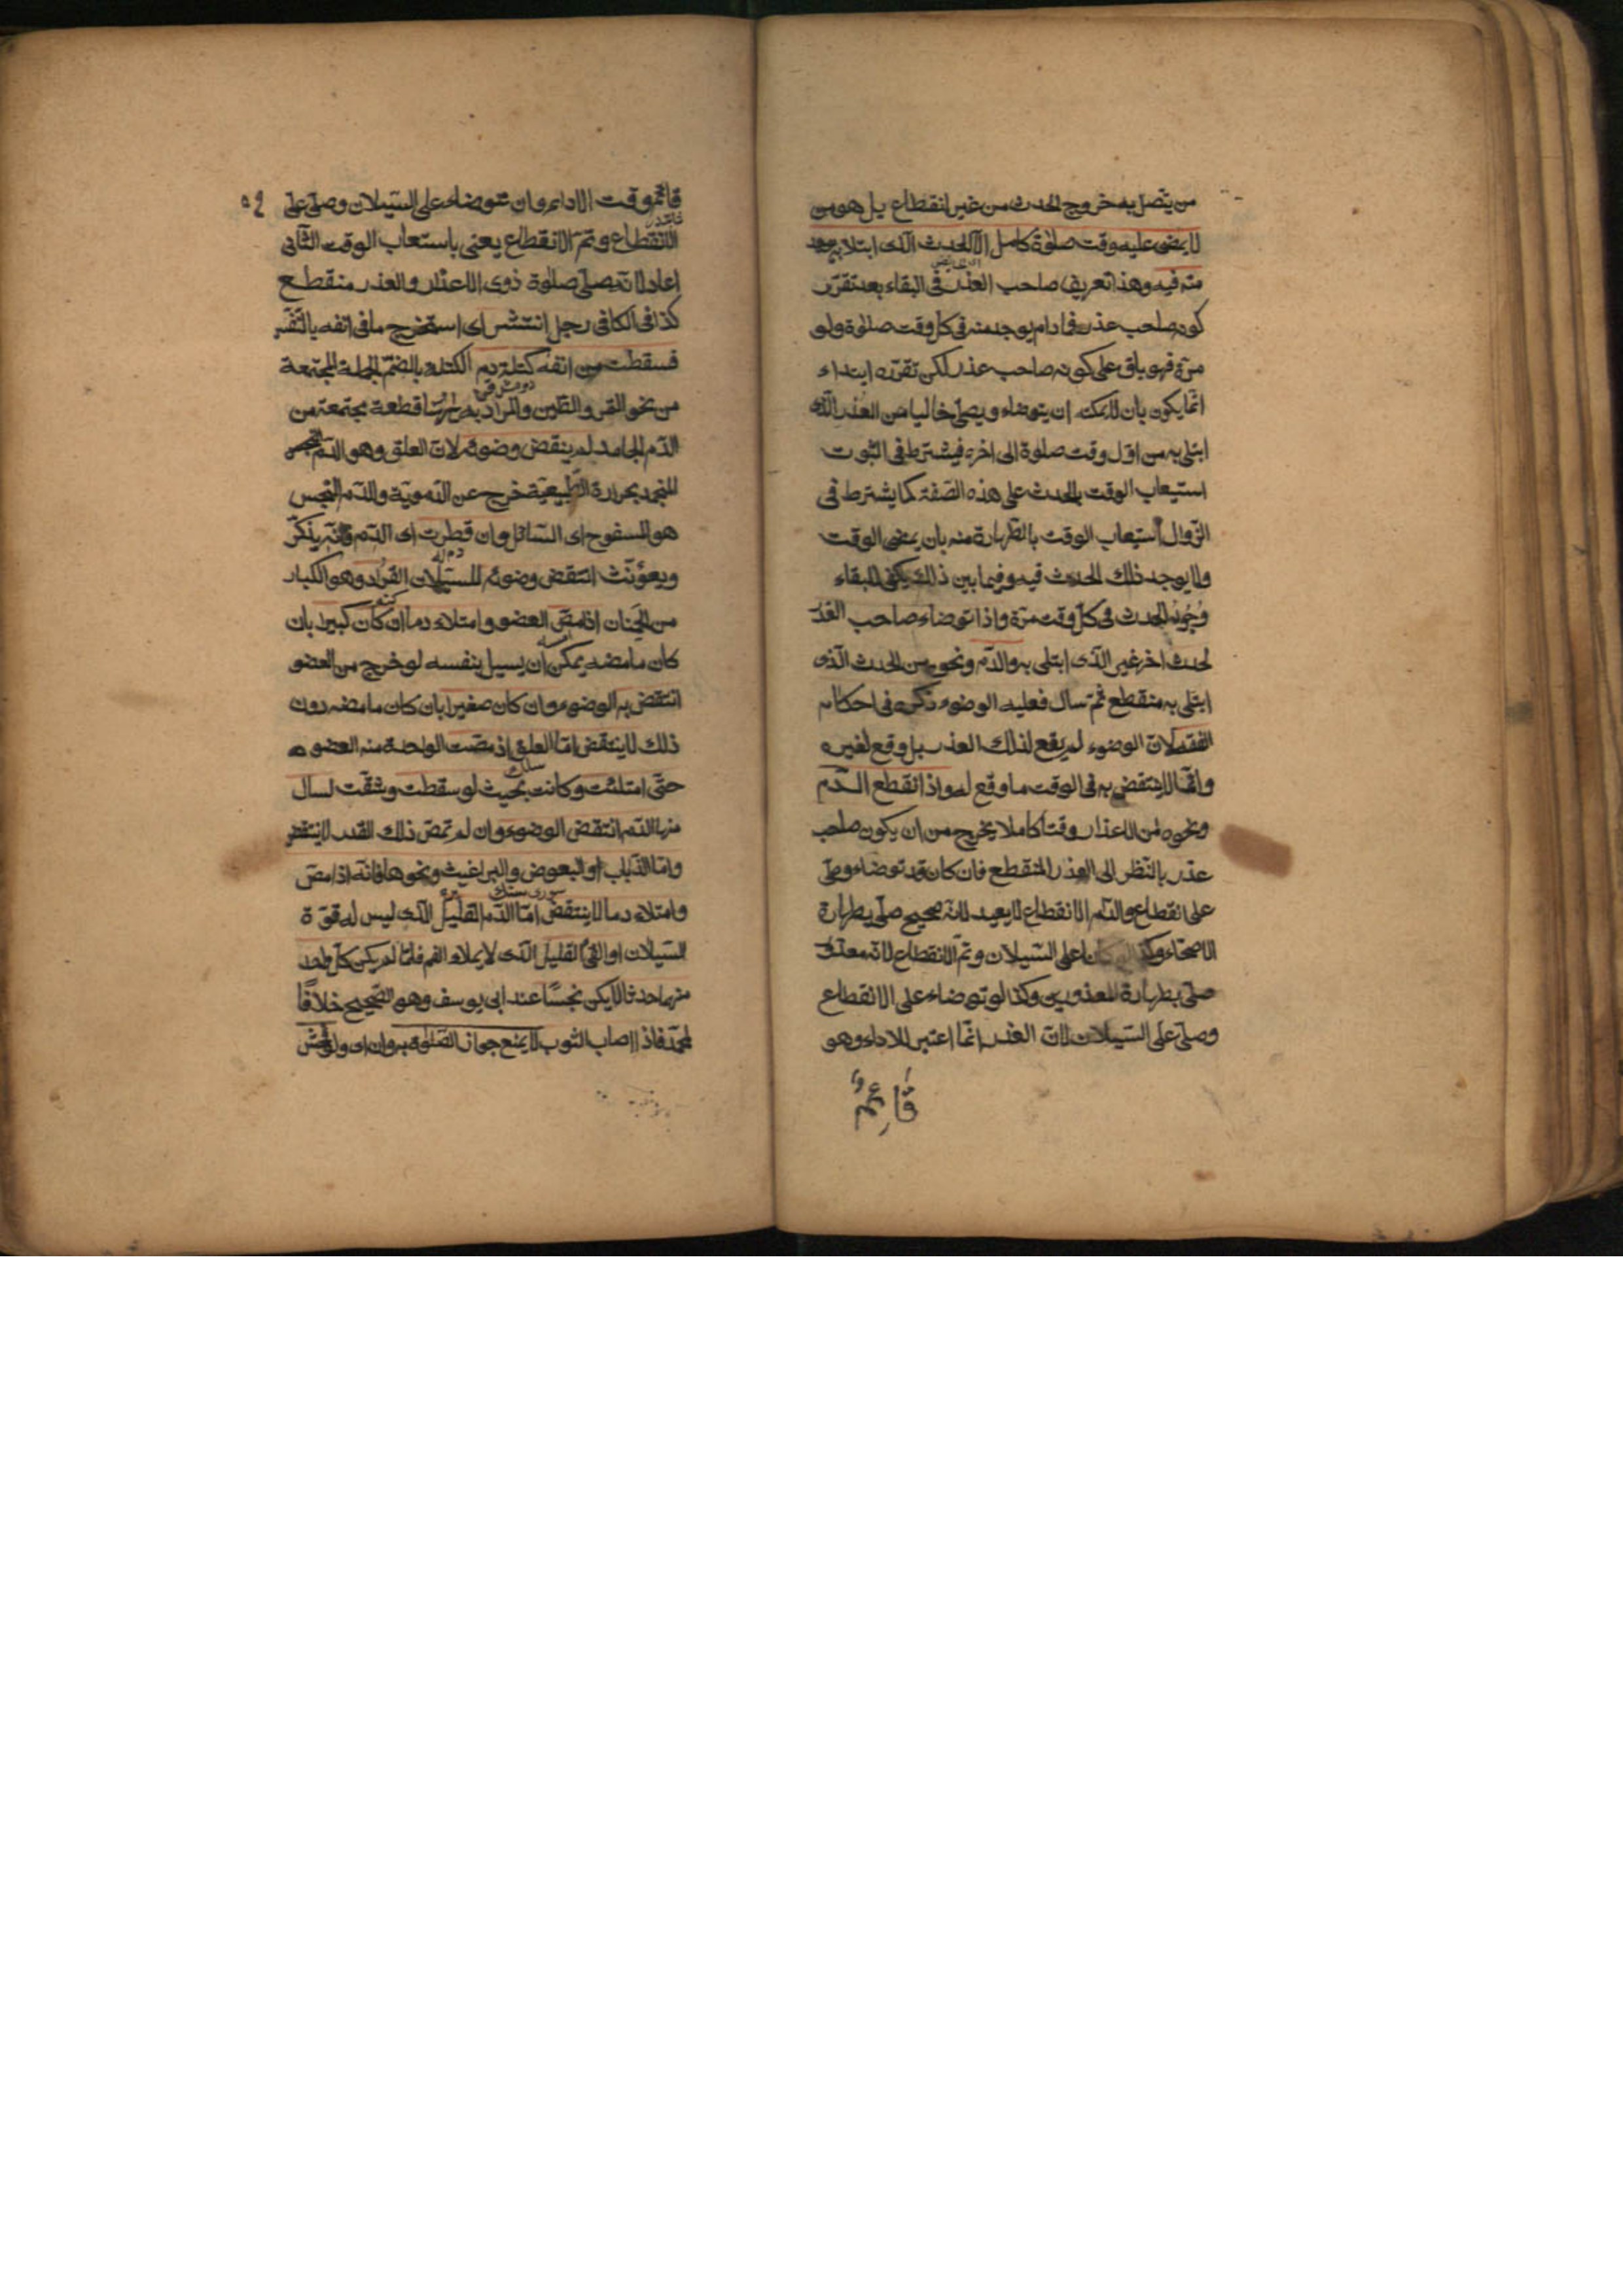 من يتصل به خروج الحدث من غير انقطاع بل هو من
لا يمضى عليه وقت صلوة كامل الا الحدث الذى ابتلا به يوجد
منه فيه وهذا تعريف صاحب العذر فى البقاء بعد تقرّر
كونه صاحب عذر فما دام يوجد منه فى كل وقت صلوة ولو
مرّة فهو باق على كونه صاحب عذر لكن تقرّره ابتداء
انّما يكون بان لا يمكنه ان يتوضاء ويصلّى خاليا من العذر الّذى
ابتلى به من اوّل وقت صلوة الى اخره فيشترط فى الثبوت
استيعاب الوقت بالحدث على هذه الصّفة كما يشترط فى
الزّوال استيعاب الوقت بالطّهارة منه بان يمضى الوقت
ولا يوجد ذلك الحدث فيه وفيما بين ذلك يكفى للبقاء
وجود الحدث فى كلّ وقت مرّة واذا توضاء صاحب العذر
لحدث اخر غير الّذى ابتلى به والدّم ونحوه من الحدث الّذى
ابتلى به منقطع ثمّ سال فعليه الوضوء ذكره فى احكام
الفقه لانّ الوضوء لم يقع لذلك العذر بل وقع لغيره
وانّما لا ينتقض به فى الوقت ما وقع له واذا انقطع الدّم
ونحوه من الاعذار وقتا كاملا يخرج من ان يكون صاحب
عذر بالنّظر الى العذر المنقطع فان كان قد توضاء وصلّى
على انقطاع والدّم الانقطاع لا يعيد لانّه صحيح صلّى بطهارة
الاصحّاء وكذا على السّيلان وتمّ الانقطاع لانّه معذور
صلّى بطهارة المعذورين وكذا لو توضاء على الانقطاع
وصلّى على السّيلان لانّ العذر انّما اعتبر للاداء وهو
قائم و
٥٩
قائم وقت الاداء وان توضاء على السّيلان وصلّى على
الانقطاع وتمّ الانقطاع يعنى باستعاب الوقت الثّانى
اعاد لانّه صلّى صلوة ذوى الاعذار والعذر منقطع
كذا فى الكافى رجل انتثر اى استخرج ما فى انفه بالنّفس
فسقطت من انفه كتلة دم الكتلة بالضمّ الجملة المجتمعة
من نحو التمر والطّين والمراد به هنا قطعة مجتمعة من
الدّم الجامد لم ينقض وضوئه لانّ العلق وهو الدّم
المنجمد بحرارة الطّبيعيّة خرج عن الدّمويّة والدّم النّجس
هو المسفوح اى السّائل وان قطرت اى الدّم فانّه يذكّر
ويعوّنّث انتقض وضوئه للسّيلان القراد وهو الكبار
من الحمنان اذا مصّ العضو وامتلاء دما ان كان كبيرا بان
كان ما مصّه يمكن ان يسيل بنفسه لو خرج من العضو
انتقض به الوضوء وان كان صغيرا بان كان ما مصّه دون
ذلك لا ينتقض امّا العلق اذ مصّت الواحدة منه العضو
حتّى امتلئت وكانت بحيث لو سقطت وشقّت لسال
منها الدّم انتقض الوضوء وان لم تمصّ ذلك القدر لا ينتقض
وامّا الذّباب او البعوض والبراغيث ونحوها فانّه اذا مصّ
وامتلاء دما لا ينتقض امّا الدّم القليل الّذى ليس له قوّة
السّيلان او القئ القليل الّذى لا يملاء الفم فلمّا لم يكن كلّ واحد
منهما حدثا لا يكن نجسًا عند ابى يوسف وهو الصّحيح خلافًا
لمحمّد فاذا اصاب الثوب لا يمنع جواز الصّلوة به وان اى ولو فحش